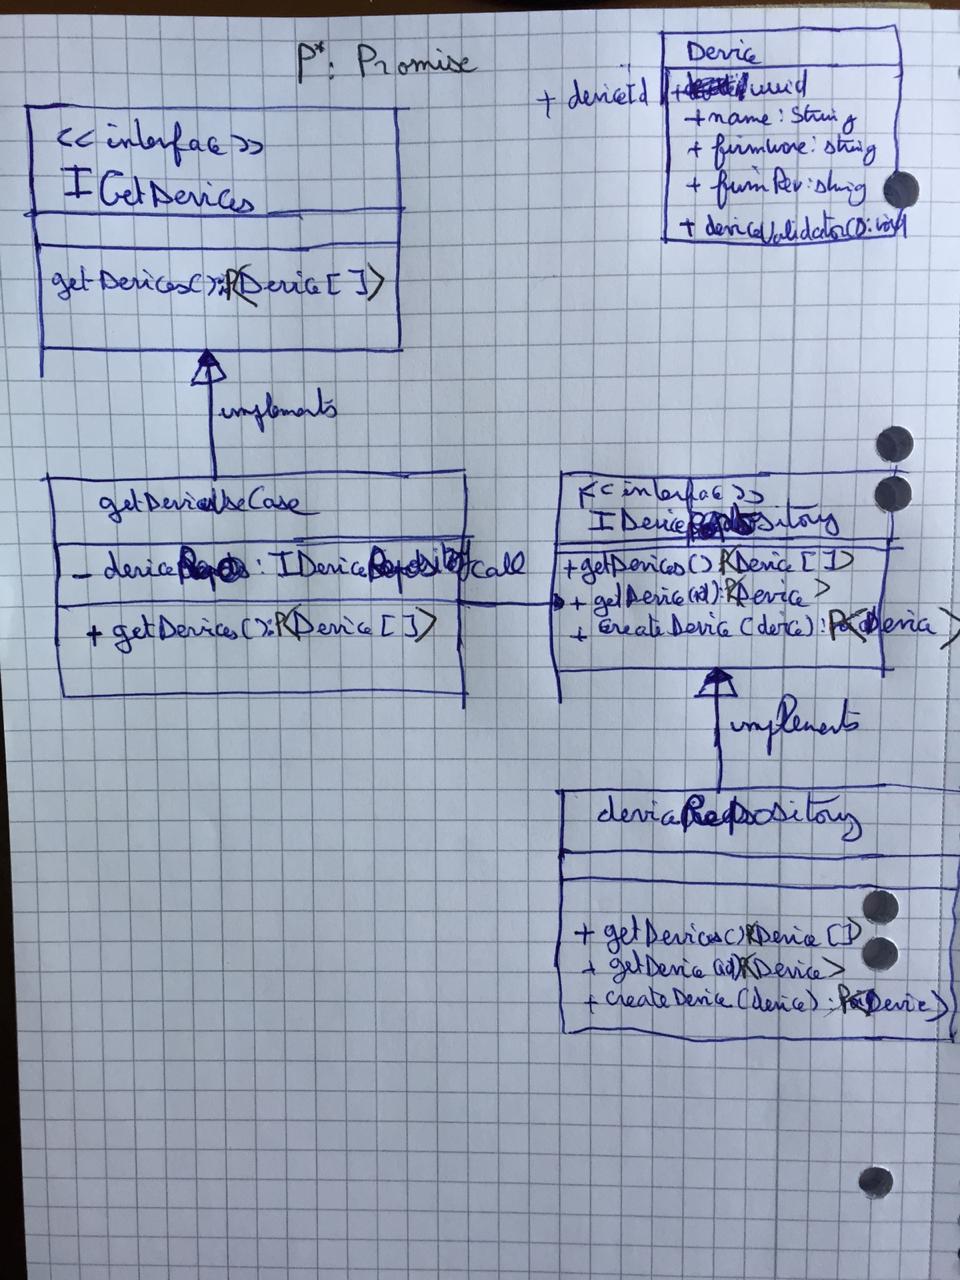 P*: Promise
Device
+ deviceId
+ uuid
+ name: String
+ firmware: string
+ firmRev: string
+ deviceValidator(): void
<<interface>>
IGetDevices
getDevices(): P<Device[]>
implements
getDeviceUseCase
- deviceRepos: IDeviceRepository call
+ getDevices(): P<Device[]>
<<interface>>
IDeviceRepository
+ getDevices() P<Device[]>
+ getDevice(id): P<Device>
+ createDevice(device): P<Device>
implements
deviceRepository
+ getDevices() P<Device[]>
+ getDevice(id) P<Device>
+ createDevice(device): P<Device>